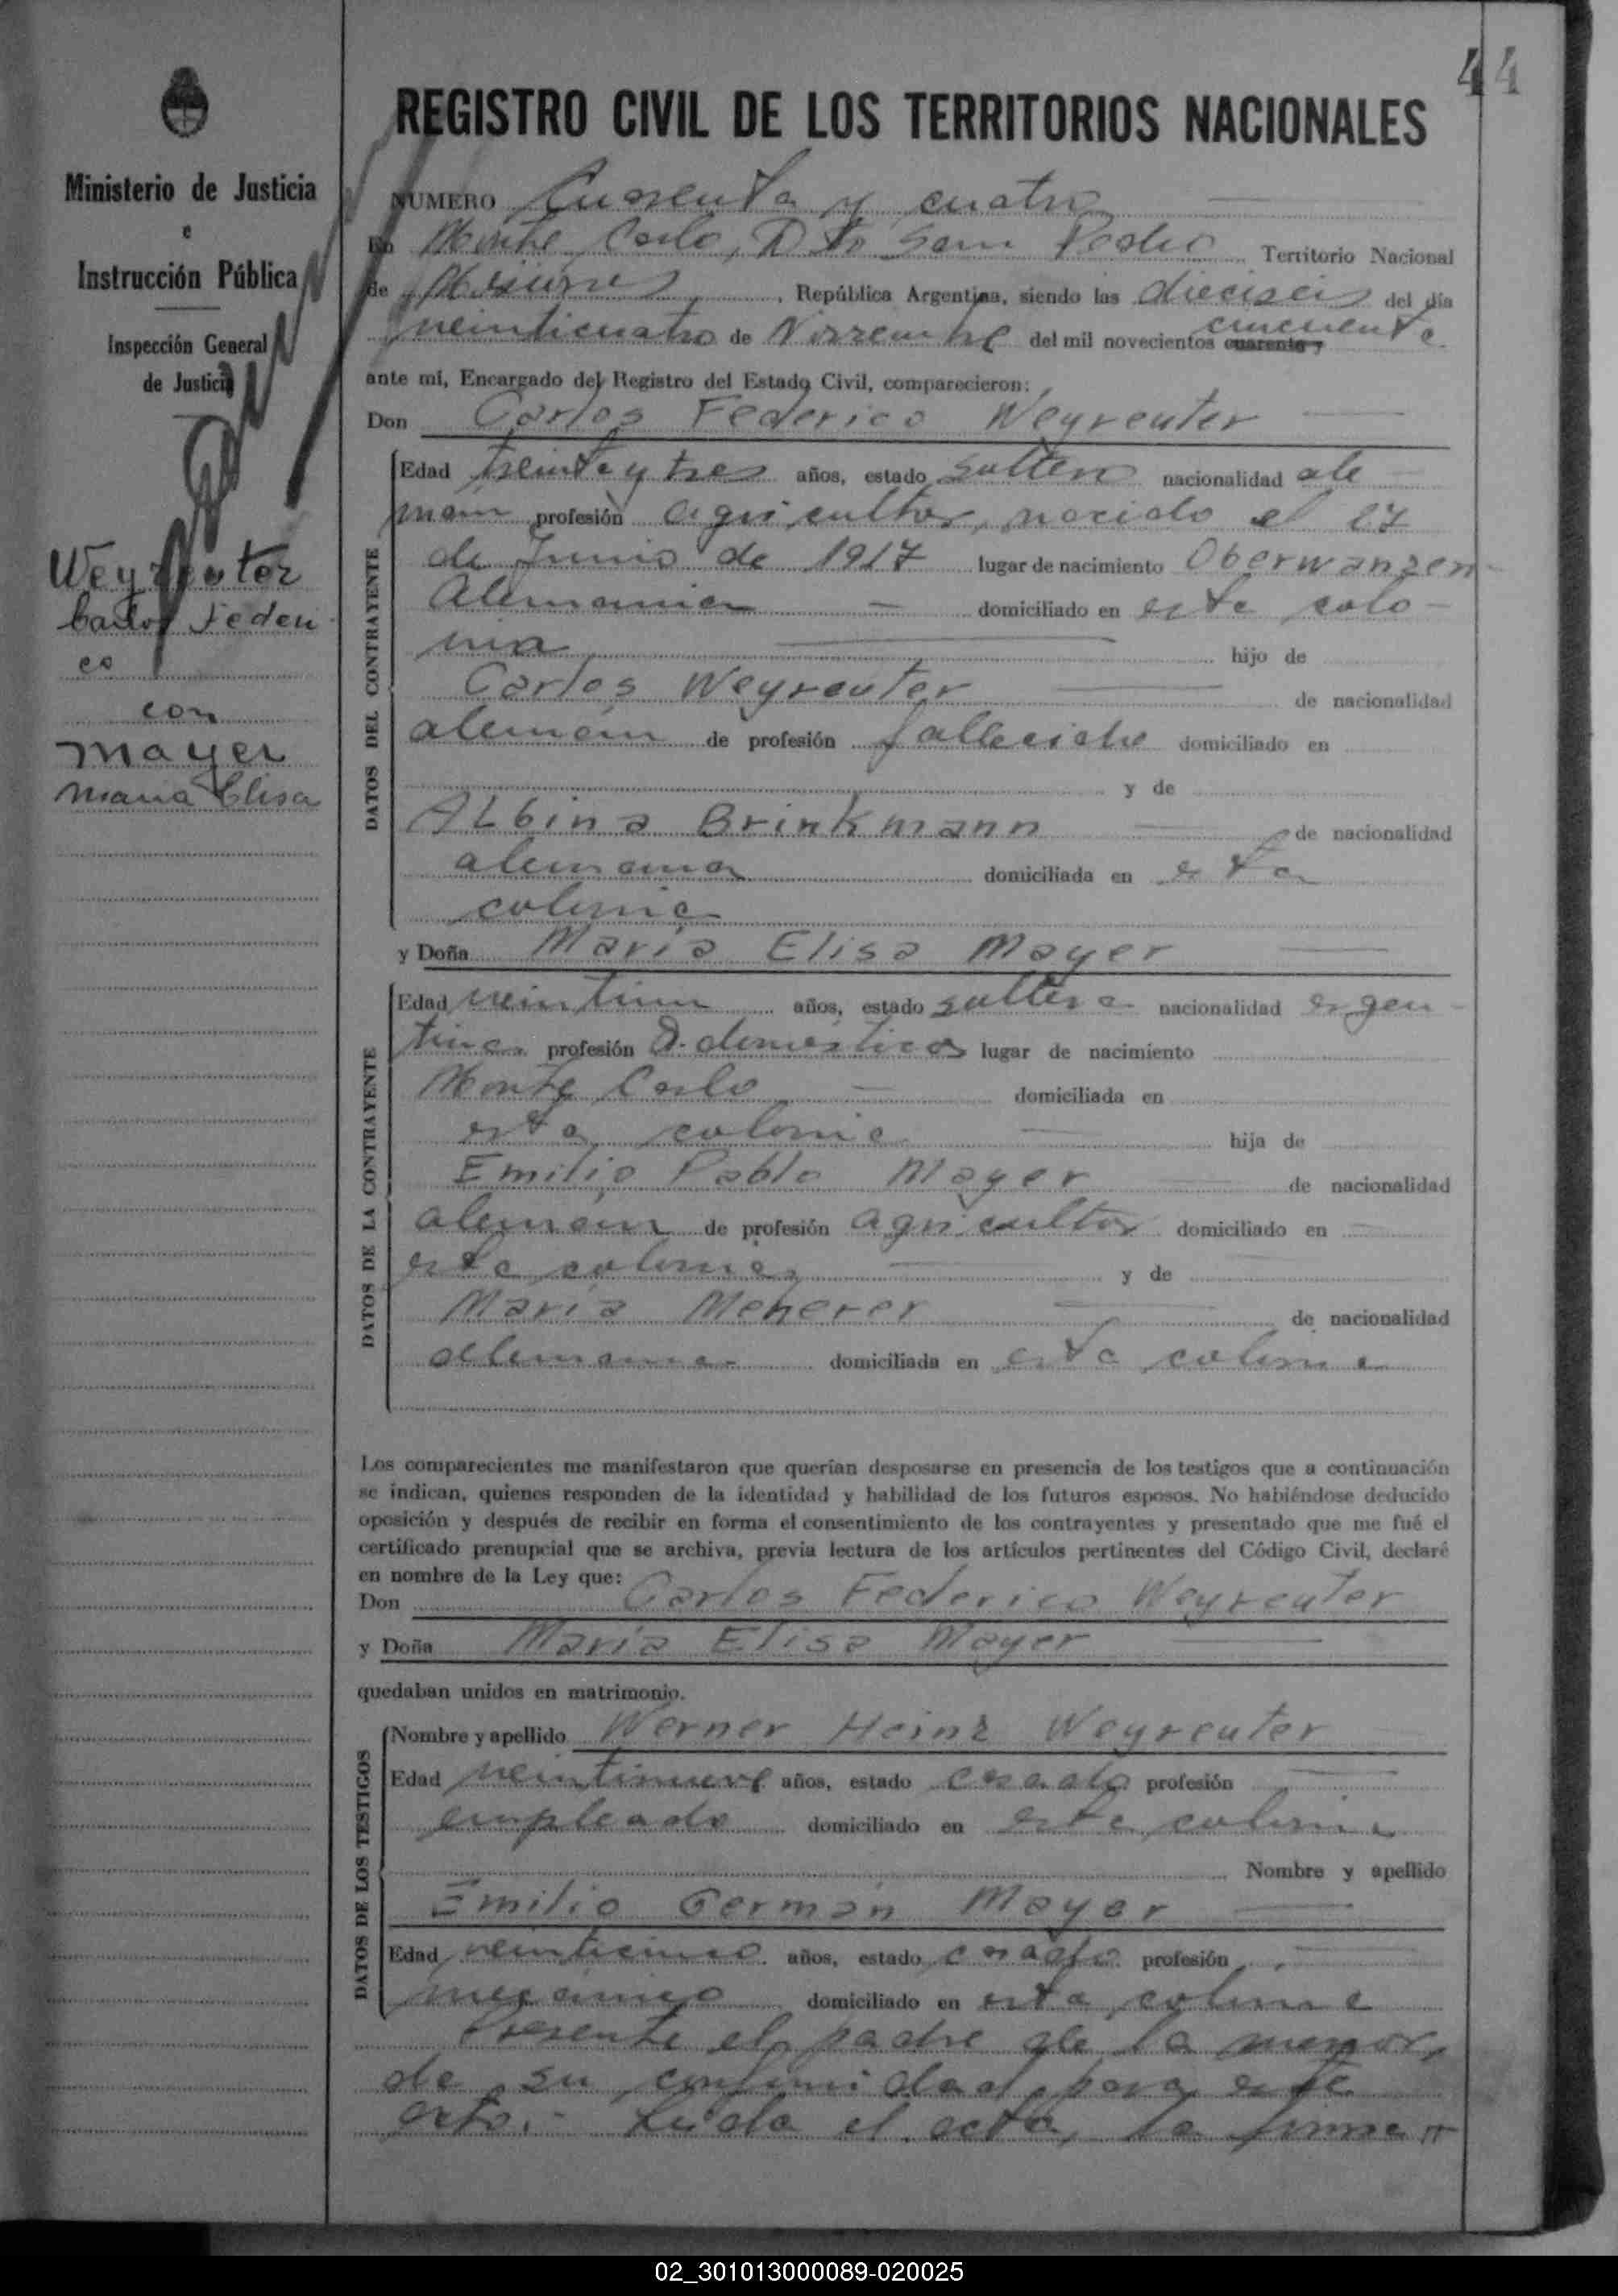 44
Ministerio de Justicia
e
Instrucción Pública
Inspección General
de Justicia
Weyreuter
Carlos Federi
co
con
Mayer
Maria Elisa
REGISTRO CIVIL DE LOS TERRITORIOS NACIONALES
NUMERO Cuarenta y cuatro
En Monte Carlo, Dto San Pedro Territorio Nacional
de Misiones, República Argentina, siendo las dieciseis del día
veinticuatro de Noviembre del mil novecientos cuarenta y cincuenta
ante mí, Encargado del Registro del Estado Civil, comparecieron:
Don Carlos Federico Weyreuter
DATOS DEL CONTRAYENTE
Edad treinta y tres años, estado soltero nacionalidad ale
mán profesión agricultor, nacido el 27
de Junio de 1917 lugar de nacimiento Oberwanzen
Alemania domiciliado en esta colo-
nia hijo de
Carlos Weyreuter de nacionalidad
alemán de profesión fallecido domiciliado en
y de
Albina Brinkmann de nacionalidad
alemana domiciliada en esta
colonia
y Doña María Elisa Mayer
DATOS DE LA CONTRAYENTE
Edad veintiun años, estado soltera nacionalidad argen-
tina profesión Q. domésticos lugar de nacimiento
Monte Carlo domiciliada en
esta colonia hija de
Emilio Pablo Mayer de nacionalidad
alemán de profesión agricultor domiciliado en
esta colonia y de
María Meherer de nacionalidad
alemana domiciliada en esta colonia
Los comparecientes me manifestaron que querían desposarse en presencia de los testigos que a continuación
se indican, quienes responden de la identidad y habilidad de los futuros esposos. No habiéndose deducido
oposición y después de recibir en forma el consentimiento de los contrayentes y presentado que me fué el
certificado prenupcial que se archiva, previa lectura de los artículos pertinentes del Código Civil, declaré
en nombre de la Ley que:
Don Carlos Federico Weyreuter
y Doña María Elisa Mayer
quedaban unidos en matrimonio.
DATOS DE LOS TESTIGOS
Nombre y apellido Werner Heinz Weyreuter
Edad veintinueve años, estado casado profesión
empleado domiciliado en esta colonia
Nombre y apellido
Emilio Germán Mayer
Edad veinticinco años, estado casado profesión
mecánico domiciliado en esta colonia
Presente el padre de la menor,
da su conformidad para este
acto.- Leida el acta, la firman
02_301013000089-020025